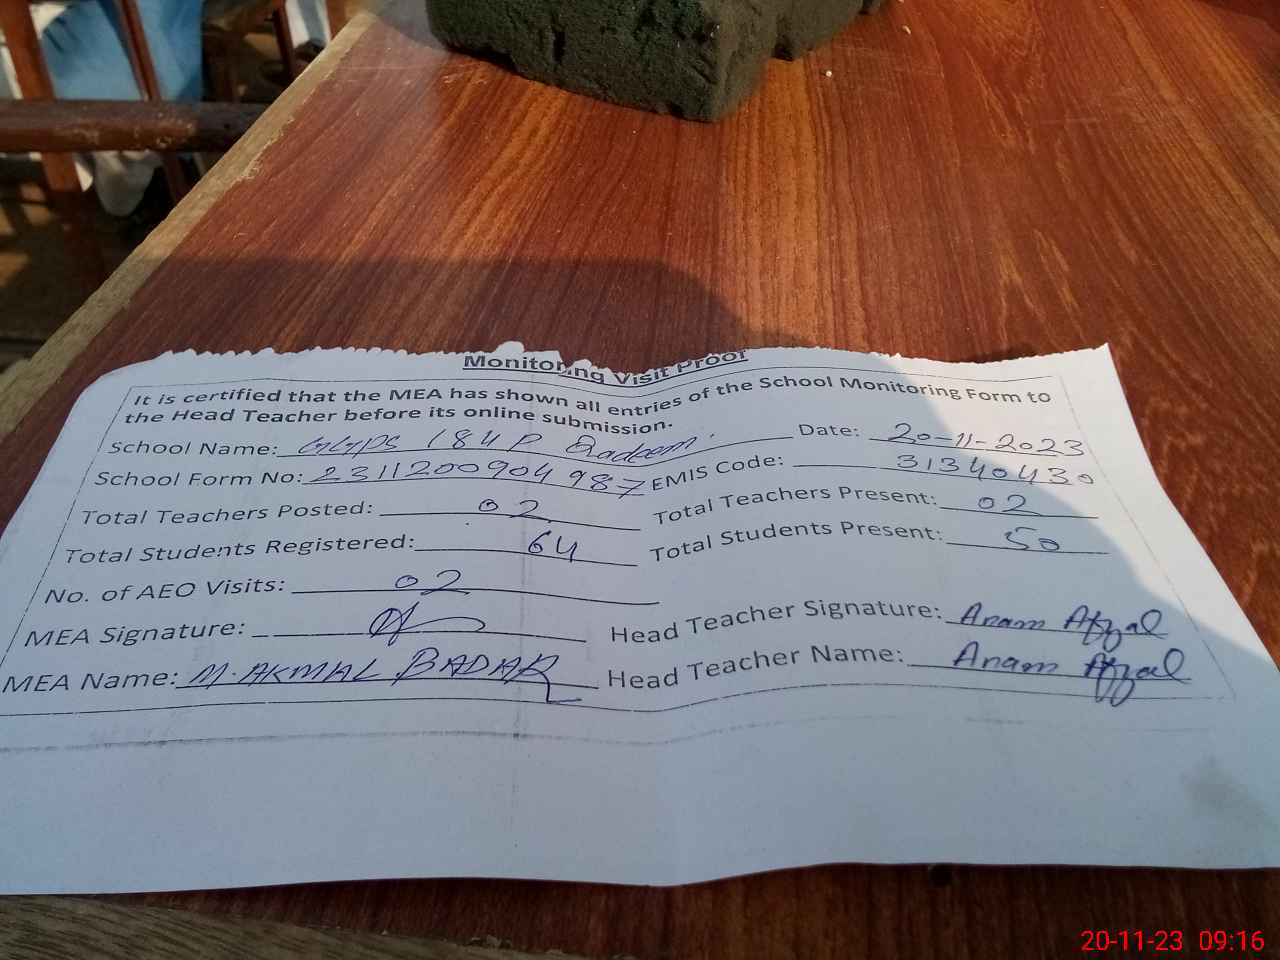 Monitoring Visit Proof
It is certified that the MEA has shown all entries of the School Monitoring Form to
the Head Teacher before its online submission.
School Name: GGPS 184 P Qadeem. Date: 20-11-2023
School Form No: 2311200904987 EMIS Code: 31340430
Total Teachers Posted: 02 Total Teachers Present: 02
Total Students Registered: 64 Total Students Present: 50
No. of AEO Visits: 02
MEA Signature: Head Teacher Signature: Anam Afzal
MEA Name: M. AKMAL BADAR Head Teacher Name: Anam Afzal
20-11-23 09:16